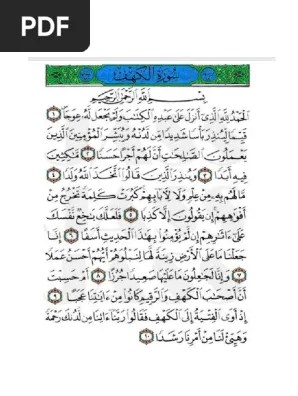 PDF
سورة الكهف
بسم الله الرحمن الرحيم
الحمد لله الذي أنزل على عبده الكتاب ولم يجعل له عوجا ١
قيما لينذر بأسا شديدا من لدنه ويبشر المؤمنين الذين
يعملون الصالحات أن لهم أجرا حسنا ٢ ماكثين
فيه أبدا ٣ وينذر الذين قالوا اتخذ الله ولدا ٤
ما لهم به من علم ولا لآبائهم كبرت كلمة تخرج من
أفواههم إن يقولون إلا كذبا ٥ فلعلك باخع نفسك
على آثارهم إن لم يؤمنوا بهذا الحديث أسفا ٦ إنا
جعلنا ما على الأرض زينة لها لنبلوهم أيهم أحسن عملا
٧ وإنا لجاعلون ما عليها صعيدا جرزا ٨ أم حسبت
أن أصحاب الكهف والرقيم كانوا من آياتنا عجبا ٩
إذ أوى الفتية إلى الكهف فقالوا ربنا آتنا من لدنك رحمة
وهيئ لنا من أمرنا رشدا ١٠